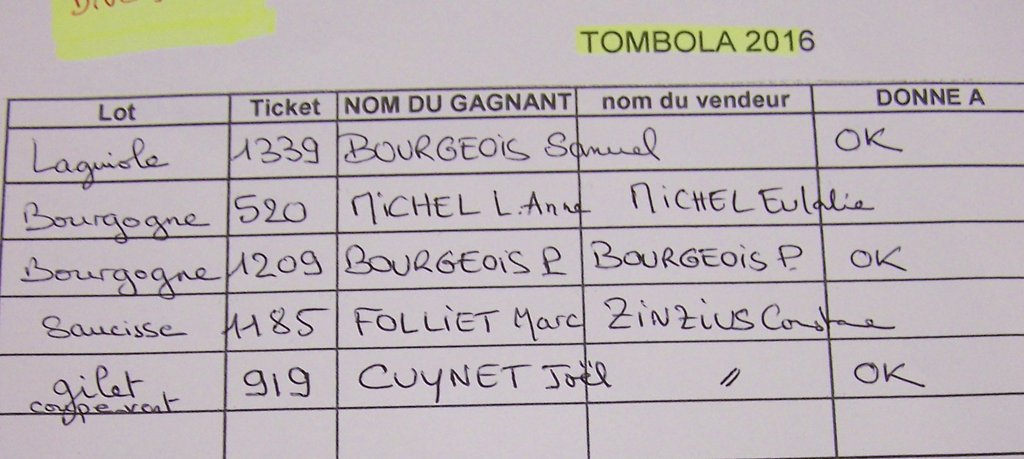 TOMBOLA 2016
Lot Ticket NOM DU GAGNANT nom du vendeur DONNE A
Laguiole 1339 BOURGEOIS Samuel OK
Bourgogne 520 MICHEL L.Anne MICHEL Eulalie
Bourgogne 1209 BOURGEOIS P. BOURGEOIS P. OK
Saucisse 1185 FOLLIET Marc ZINZIUS Constane
gilet 919 CUYNET Joël " OK
coupe vent